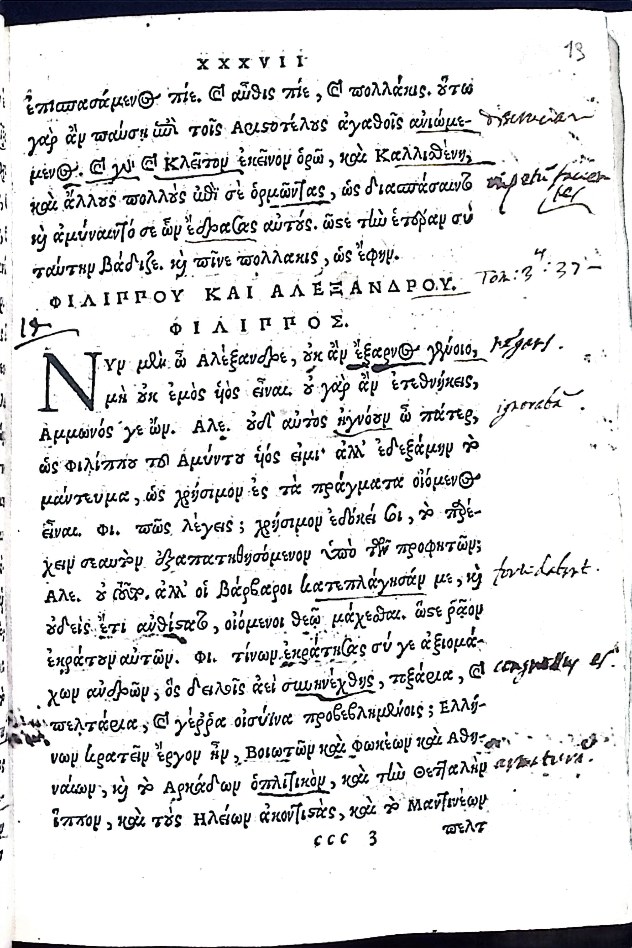 XXXVII 13
ἐπισπασάμενος πίε. καὶ αὖθις πίε, καὶ πολλάκις. οὕτω
γὰρ ἂν παύσῃ ἐπὶ τοῖς Αριστοτέλους ἀγαθοῖς ἀνιώμε-
μενος. καὶ γὰρ καὶ Κλεῖτον ἐκεῖνον ὁρῶ, καὶ Καλλισθένην,
καὶ ἄλλους πολλοὺς ἐπὶ σὲ ὁρμῶντας, ὡς διασπάσαιντο
καὶ ἀμύναιντό σε ὧν ἔδρασας αὐτούς. ὥστε τὴν ἑτέραν σὺ
ταύτην βάδιζε. καὶ πῖνε πολλακις, ὡς ἔφην.
ΦΙΛΙΠΠΟΥ ΚΑΙ ΑΛΕΞΑΝΔΡΟΥ.
14
ΦΙΛΙΠΠΟΣ.
Νῦν μὲν ὦ Αλέξανδρε, οὐκ ἂν ἔξαρνος γένοιο, negans.
μὴ οὐκ ἐμὸς υἱὸς εἶναι. οὐ γὰρ ἂν ἐτεθνήκεις,
Αμμωνός γε ὤν. Αλε. οὐδ' αὐτὸς ἠγνόουν ὦ πάτερ, ignorabā.
ὡς Φιλίππου τοῦ Αμύντου υἱός εἰμι· ἀλλ' ἐδεξάμην τὸ
μάντευμα, ὡς χρήσιμον ἐς τὰ πράγματα οἰόμενος
εἶναι. Φι. πῶς λέγεις; χρήσιμον ἐδόκει σοι, τὸ παρέ-
χειν σεαυτὸν ἐξαπατηθησόμενον ὑπὸ τῶν προφητῶν;
Αλε. οὐ τοῦτο. ἀλλ' οἱ Βάρβαροι κατεπλάγησάν με, καὶ
οὐδεὶς ἔτι ἀνθίστατο, οἰόμενοι θεῷ μάχεσθαι. ὥστε ῥᾷον
ἐκράτουν αὐτῶν. Φι. τίνων ἐκράτησας σύ γε ἀξιομά-
χων ἀνδρῶν, ὃς δειλοῖς ἀεὶ συνηνέχθης, τοξάρια, καὶ
πελτάρια, καὶ γέρρα οἰσύϊνα προβεβλημένοις; Ελλή-
νων κρατεῖν ἔργον ἦν, Βοιωτῶν καὶ Φωκέων καὶ Αθη-
ναίων, καὶ τὸ Αρκάδων ὁπλιτικὸν, καὶ τὴν Θετταλὴν
ἵππον, καὶ τοὺς Ηλείων ἀκοντιστὰς, καὶ τὸ Μαντινέων
ccc 3 πελτ